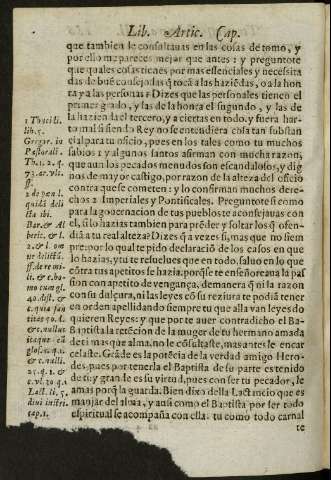 Lib. Artic. Cap.
que tambien le consultauas en las cosas de tomo, y
por ello me pareces mejor que antes: y preguntote
que quales cosas tienes por mas essenciales y necessita
das de buē consejo las q̃ tocã a las haziēdas, o a la hon
ra y a las personas? Dizes que las personales tienen el
primer grado, y las de la honra el segundo, y las de
la haziēda el tercero, y aciertas en todo, y fuera har-
to mal si siendo Rey no se entendiera cosa tan substan
cial para tu oficio, pues en los tales como tu muchos
sabios 1 y algunos santos afirman con mucha razon,
que aun los pecados menudos son escandalosos, y dig
nos de mayor castigo, por razon de la alteza del oficio
contra que se cometen: y lo confirman muchos dere-
chos 2 Imperiales y Pontificales. Preguntote si como
para la gouernacion de tus pueblos te aconsejauas con
el, si lo hazias tambien para prēder y soltar los q̃ ofen-
diã a tu real alteza? Dizes q̃ a vezes si, mas que no siem
pre: por lo qual te pido declaraciõ de los casos en que
lo hazias, y tu te resuelues que en todo, saluo en lo que
cõtra tus apetitos se hazia: porq̃ se te enseñoreaua la pas
sion con apetito de vengança, demanera q̃ ni la razon
con su dulçura, ni las leyes cõ su reziura te podiã tener
en orden apellidando siempre tu que alla van leyes do
quieren Reyes: y que por te auer contradicho el Ba-
Baptista la retēcion de la muger de tu hermano amada
de ti mas que alma, no le cõsultaste, mas antes le encar
celaste. Grãde es la potēcia de la verdad amigo Hero-
des, pues por tenerla el Baptista de su parte es tenido
de ti: y grande es su virtud, pues con ser tu pecador, le
amas porq̃ la guarda. Bien dixo della Lactancio que es
manjar del alma, y aun como el Baptista por ser todo
espiritual se acompaña con ella: tu como todo carnal
te
1 Thuci li.
lib. 5.
Gregor. in
Pastorali.
Th. 1. 2. q.
73. ar. vlt.
ff.
2 de pœn l.
quidã deli
cta ibi.
Bar. & Al
beric. & l.
2. & l. om
ne delictũ.
ff. de re mi-
lit. & c. ho-
mo cum gl.
40. dist. &
c. quia san
ctitas 50. l.
& c. nullus
itaque cũ
glos. 2. q. 1.
& c. nulli.
25. q. 1. &
c. vl. 20 q. 1
Lact. li. 5.
diui instit.
cap. 1.